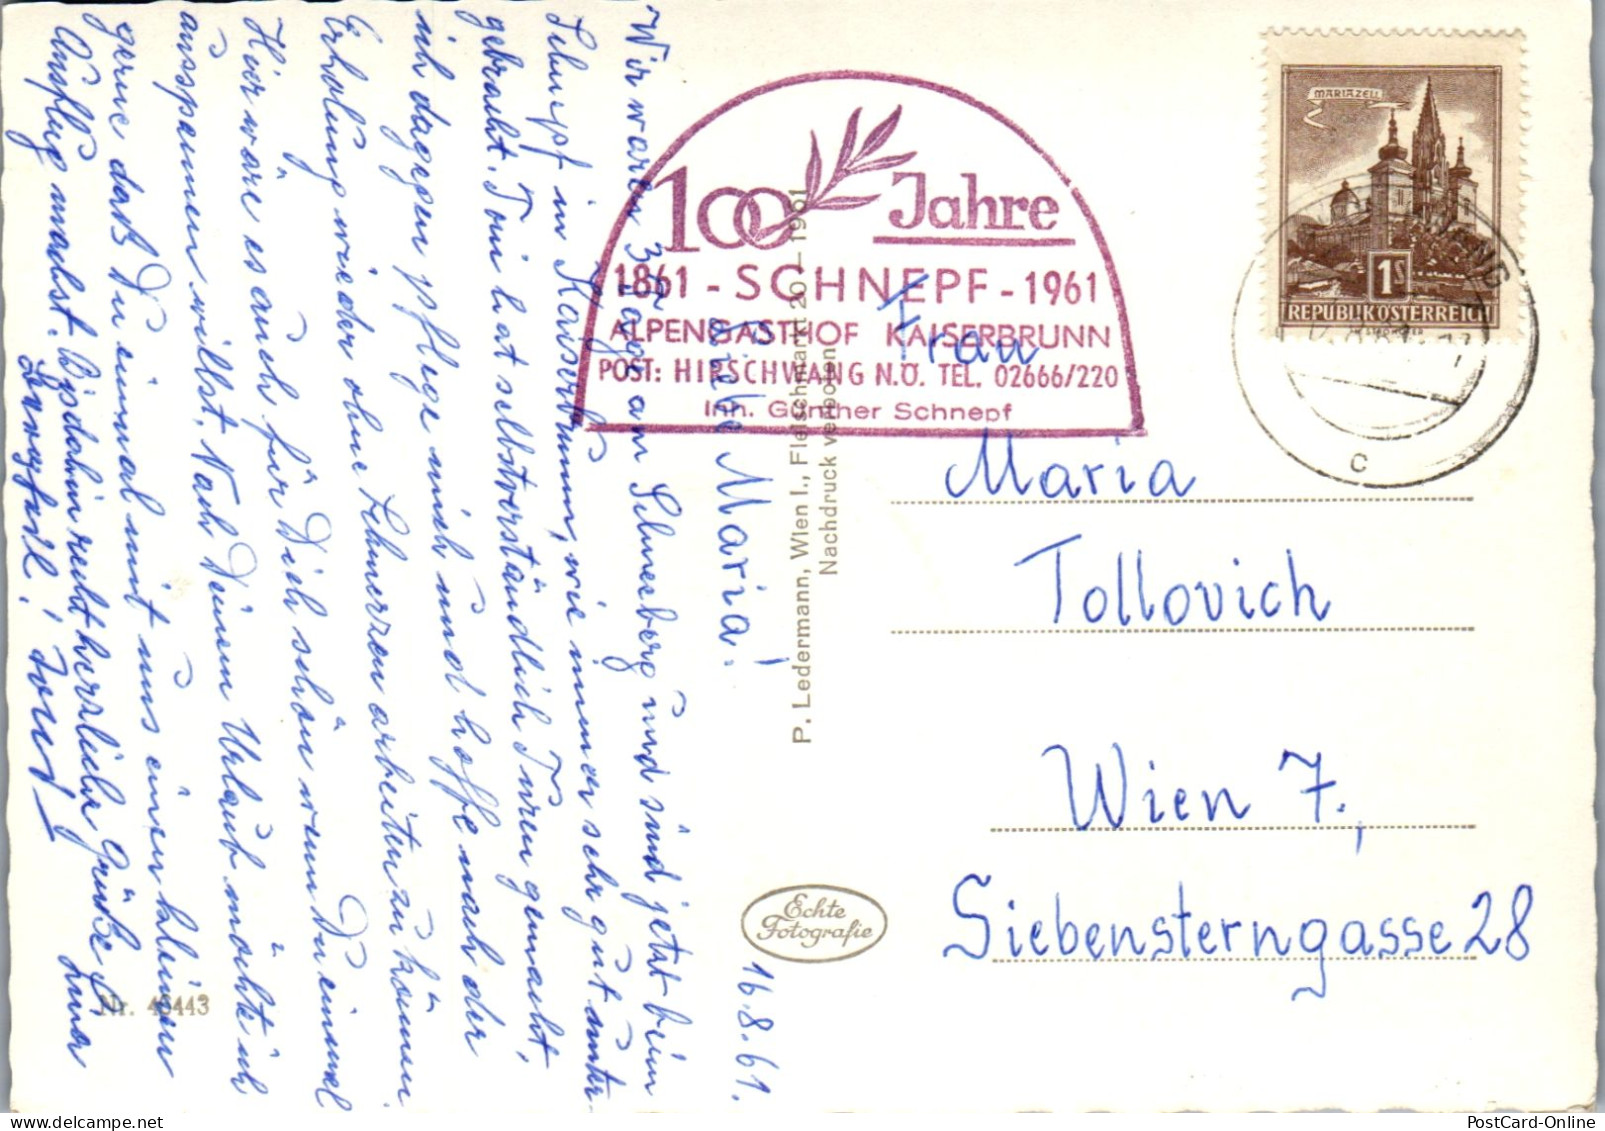 16.8.61.
Liebe Maria!
Wir waren 3 Tage am Schneeberg und sind jetzt beim
Schnepf in Kaiserbrunn, wie immer sehr gut unter-
gebracht. Toni hat selbstverständlich Turen gemacht,
ich dagegen pflege mich und hoffe nach der
Erholung wieder ohne Schmerzen arbeiten zu können.
Hier wäre es auch für Dich schön wenn Du einmal
ausspannen willst. Nach Deinem Urlaub möchte ich
gerne daß Du einmal mit uns einen kleinen
Ausflug machst. Bis dahin recht herzliche Grüße
100 Jahre
1861 - SCHNEPF - 1961
ALPENGASTHOF KAISERBRUNN
POST: HIRSCHWANG N.Ö. TEL. 02666/220
Inh. Günther Schnepf
MARIAZELL
1S
REPUBLIK ÖSTERREICH
C
P. Ledermann, Wien I., Fleischmarkt 20 – 1961
Nachdruck verboten
Echte
Fotografie
Nr. 46443
Frau
Maria
Tollovich
Wien 7.,
Siebensterngasse 28